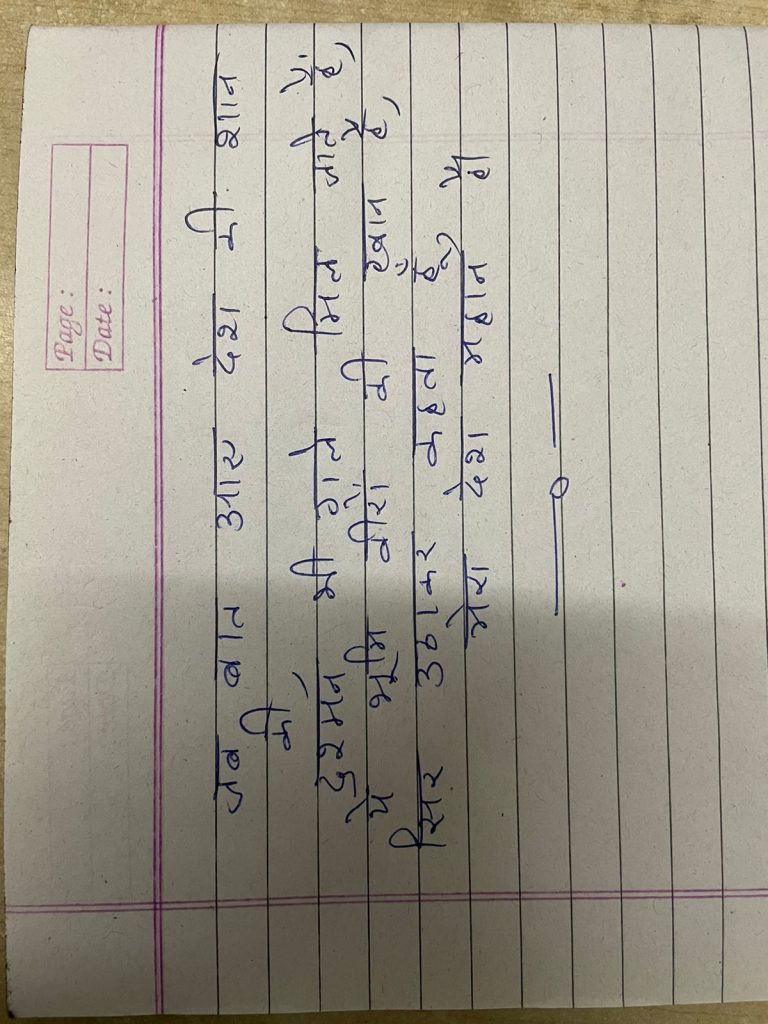 Page:
Date:
जब बात आए देश की शान
की,
दुश्मन भी गले मिल जाते हैं,
ये भूमि वीरों की खान है,
सिर उठाकर कहता हूँ,
मेरा देश महान है।